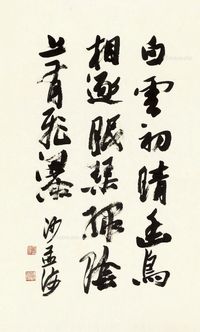 白雲初晴幽鳥
相逐眠琴綠陰
上有飛瀑 沙孟海